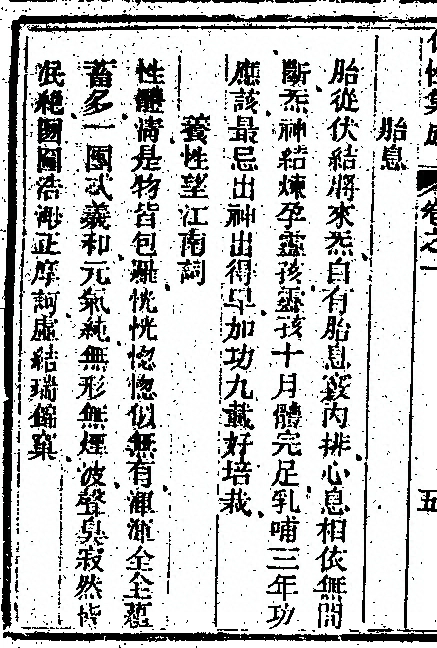 卷之一
五
胎息
胎從伏結將來炁自有胎息竅內排心息相依無間
斷炁神結煉孕靈孩靈孩十月體完足乳哺三年功
應該最忌出神出得早加功九載好培栽
養性望江南詞
性體清是物皆包羅恍恍惚惚似無有渾渾全全蘊
蓄多一團太羲和元氣純無形無煙波聲臭寂然皆
泯絕團圞浩海正摩訶虛結瑞僊窠